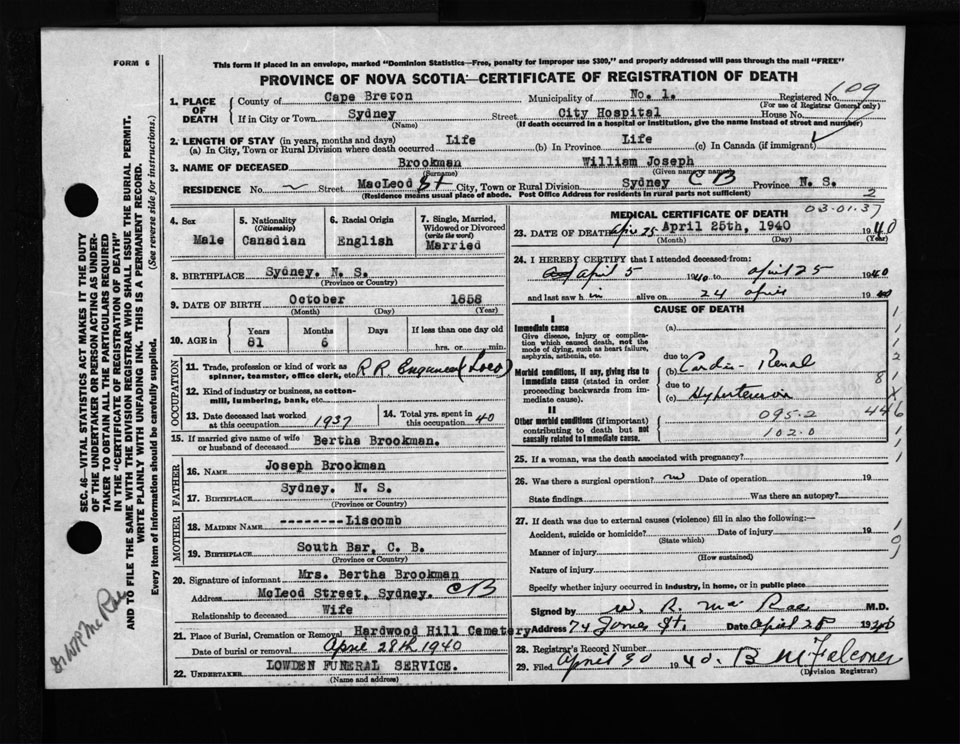 FORM 6
This form if placed in an envelope, marked "Dominion Statistics—Free, penalty for improper use $300," and properly addressed will pass through the mail "FREE"
PROVINCE OF NOVA SCOTIA—CERTIFICATE OF REGISTRATION OF DEATH
1. PLACE OF DEATH County of Cape Breton Municipality of No. 1. Registered No. 109
(For use of Registrar General only)
If in City or Town Sydney Street City Hospital House No.
(Name) (If death occurred in a hospital or institution, give the name instead of street and number)
2. LENGTH OF STAY (in years, months and days)
(a) In City, Town or Rural Division where death occurred Life (b) In Province Life (c) In Canada (if immigrant)
3. NAME OF DECEASED Brookman William Joseph
(Surname) (Given name or names)
RESIDENCE No. Street MacLeod St City, Town or Rural Division Sydney CB Province N. S.
(Residence means usual place of abode. Post Office Address for residents in rural parts not sufficient) 2
4. Sex Male
5. Nationality (Citizenship) Canadian
6. Racial Origin English
7. Single, Married, Widowed or Divorced (write the word) Married
8. BIRTHPLACE Sydney. N. S.
(Province or Country)
9. DATE OF BIRTH October 1858
(Month) (Day) (Year)
10. AGE in Years 81 Months 6 Days If less than one day old hrs. or min.
OCCUPATION
11. Trade, profession or kind of work as spinner, teamster, office clerk, etc. R.R. Engineer (Loco)
12. Kind of industry or business, as cotton-mill, lumbering, bank, etc.
13. Date deceased last worked at this occupation 1937
14. Total yrs. spent in this occupation 40
15. If married give name of wife or husband of deceased Bertha Brookman.
FATHER
16. NAME Joseph Brookman
17. BIRTHPLACE Sydney. N. S.
(Province or Country)
MOTHER
18. MAIDEN NAME --------Liscomb
19. BIRTHPLACE South Bar, C. B.
(Province or Country)
20. Signature of informant Mrs. Bertha Brookman
Address McLeod Street, Sydney. CB
Relationship to deceased Wife
21. Place of Burial, Cremation or Removal Hardwood Hill Cemetery
Date of burial or removal April 28th 1940
22. UNDERTAKER LOWDEN FUNERAL SERVICE.
(Name and address)
MEDICAL CERTIFICATE OF DEATH 03-01-37
23. DATE OF DEATH Apr 25 April 25th, 1940 1940
(Month) (Day) (Year)
24. I HEREBY CERTIFY that I attended deceased from:
April 5 1940 to April 25 1940
and last saw him alive on 24 April 1940
CAUSE OF DEATH
I
Immediate cause
Give disease, injury or complication which caused death, not the mode of dying, such as heart failure, asphyxia, asthenia, etc.
(a)
due to
Morbid conditions, if any, giving rise to immediate cause (stated in order proceeding backwards from immediate cause).
(b) Cardio-Renal
due to
(c) Hypertension
II
Other morbid conditions (if important) contributing to death but not causally related to immediate cause.
095-2
446
102.0
25. If a woman, was the death associated with pregnancy?
26. Was there a surgical operation? no Date of operation 19
State findings Was there an autopsy?
27. If death was due to external causes (violence) fill in also the following:—
Accident, suicide or homicide? Date of injury 19
(State which)
Manner of injury
(How sustained)
Nature of injury
Specify whether injury occurred in industry, in home, or in public place
Signed by W. R. McRae M.D.
Address 74 Jones St. Date April 28 1940
28. Registrar's Record Number
29. Filed April 30 1940. B McFalconer
(Division Registrar)
SEC. 46—VITAL STATISTICS ACT MAKES IT THE DUTY
OF THE UNDERTAKER OR PERSON ACTING AS UNDER-
TAKER TO OBTAIN ALL THE PARTICULARS REQUIRED
IN THE "CERTIFICATE OF REGISTRATION OF DEATH"
AND TO FILE THE SAME WITH THE DIVISION REGISTRAR WHO SHALL ISSUE THE BURIAL PERMIT.
WRITE PLAINLY WITH UNFADING INK. THIS IS A PERMANENT RECORD.
Every item of information should be carefully supplied. (See reverse side for instructions.)
Dr WR McRae